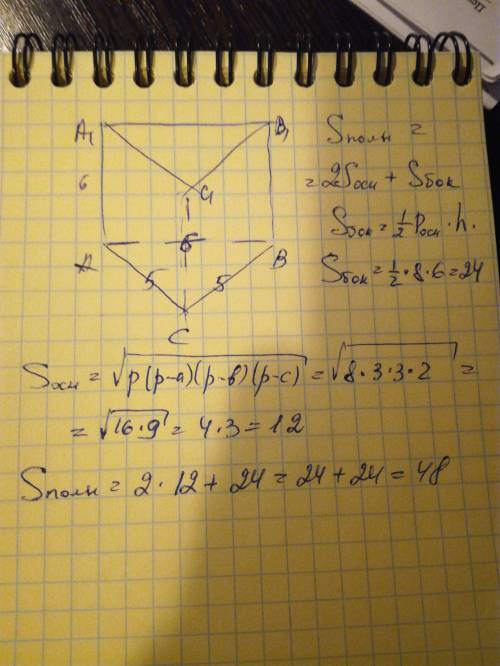 A₁
B₁
6
C₁
A
6
B
5
5
C
Sполн =
= 2Sосн + Sбок
Sбок = 1/2 Pосн · h.
Sбок = 1/2 · 8 · 6 = 24
Sосн = √p(p-a)(p-в)(p-c) = √8·3·3·2 =
= √16·9 = 4·3 = 12
Sполн = 2 · 12 + 24 = 24 + 24 = 48